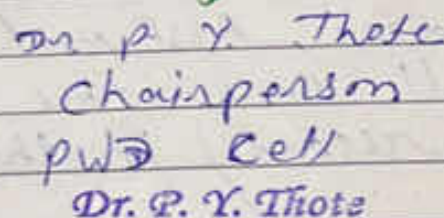 Dr P. Y. Thote
Chairperson
PWD Cell
Dr. P. Y. Thote